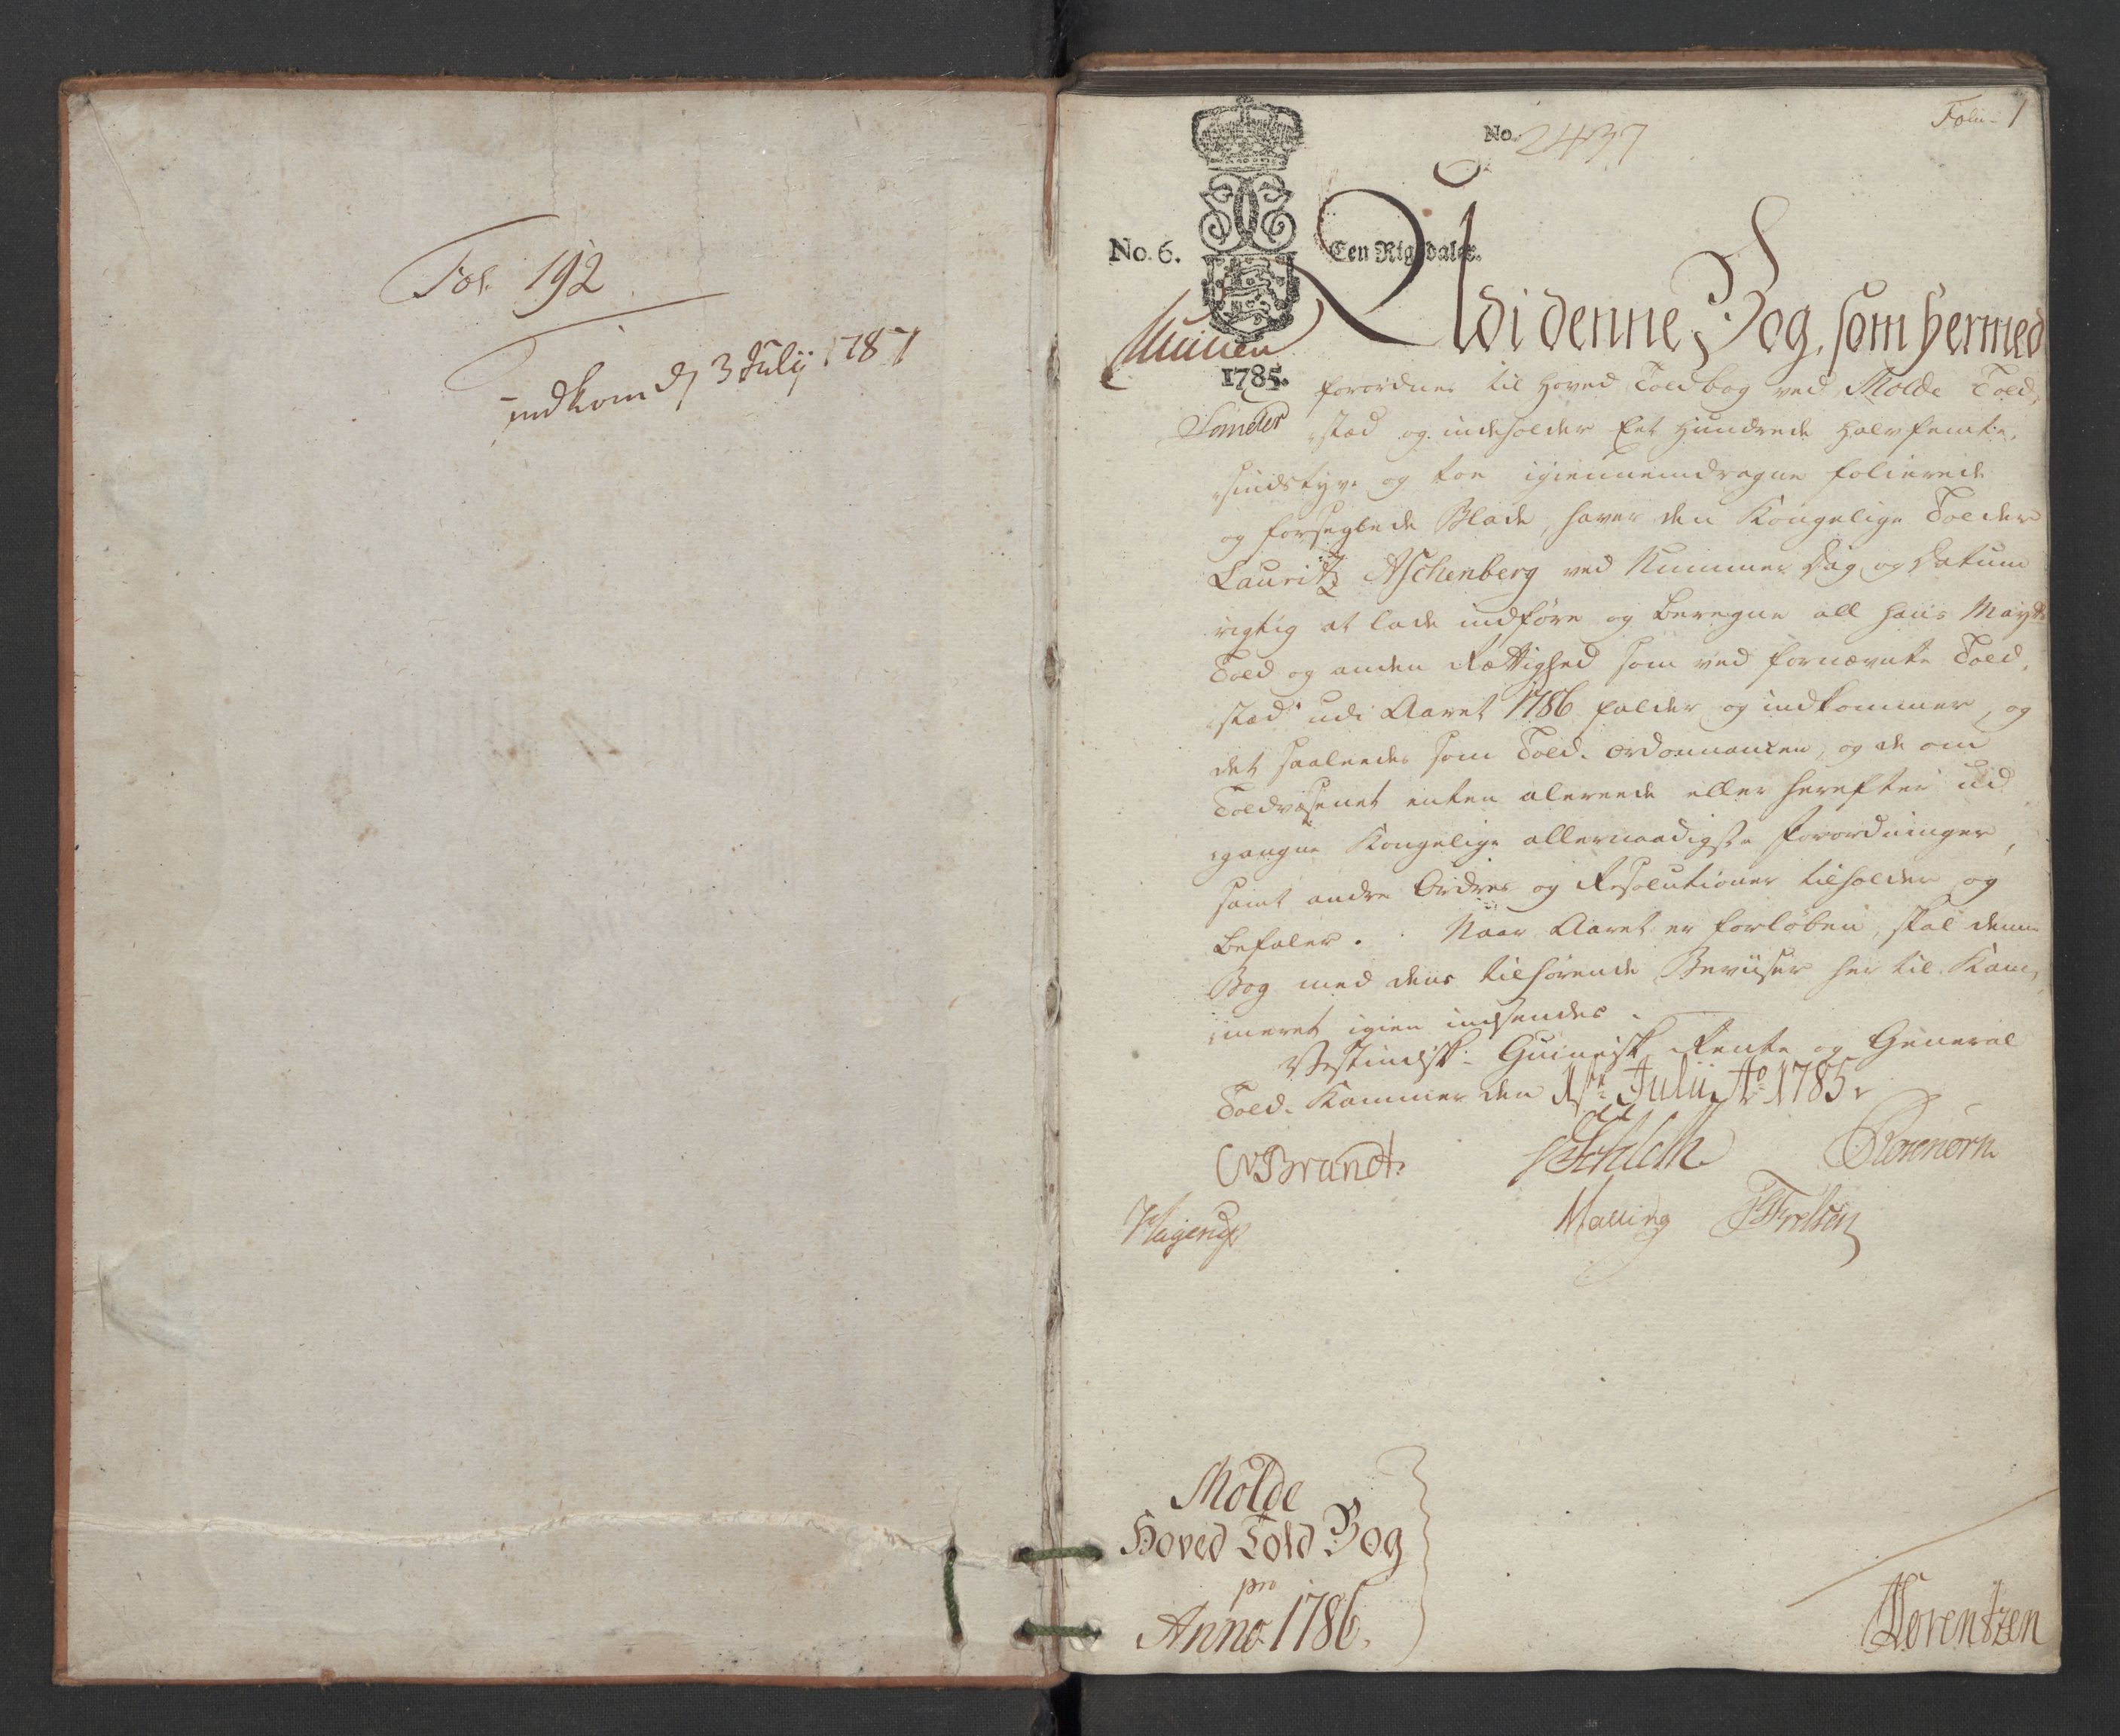 Fol. 192
indkom d 3 Julij 1787
Folio 1
No. 2437
No. 6.
Een Rigsdaler.
Udi denne Bog, som hermed
1785.
forordnes til Hoved Toldbog ved Molde Told,
stæd og indeholder Eet Hundrede Halvfemte,
sindstyve og toe igiennemdragne folierede
og forseglede Blade, haver den Kongelige Tolder
Lauritz Aschenberg ved Nummer Dag og Datum
rigtig at lade indføre og beregne all Hans Mayts
Told og anden Rettighed som ved fornævnte Told,
stæd udi Aaret 1786 falder og indkommer, og
det saaleedes som Told-Ordonnancen, og de om
Toldvæsenet enten alereede eller herefter ud
gangne Kongelige allernaadigste Forordninger,
samt andre Ordres og Resolutioner tilholder og
befaler. Naar Aaret er forløben, skal denne
Bog med dens tilhørende Beviiser her til Kam,
meret igien indsendes.
Vestindisk-Guineisk Rente og General
Told-Kammer den 1ste Julii Ao 1785.
CvBrandt.
Rosenørn
Hagerup
Malling
Molde
Hoved Told Bog
pro
Anno 1786.
Lorentzen